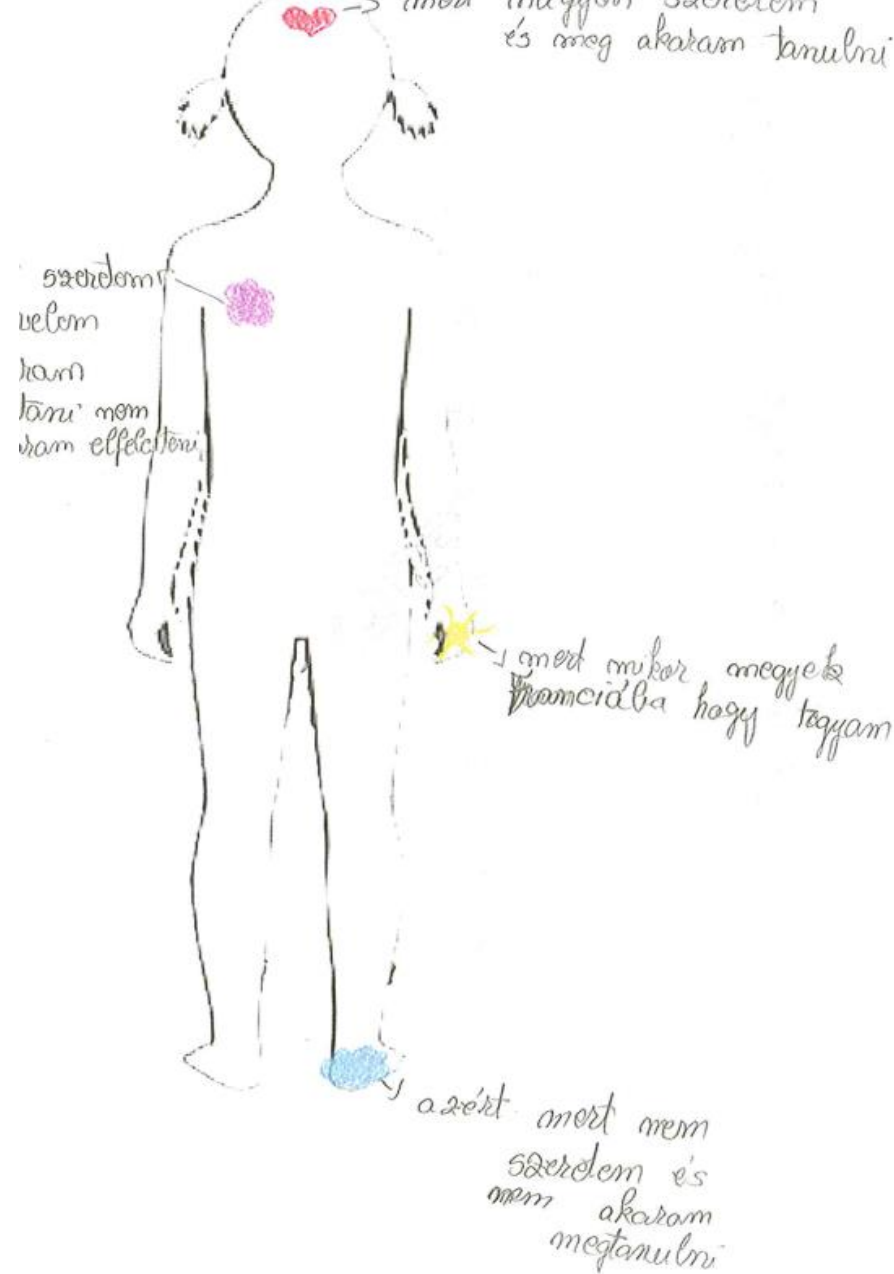 mert nagyon szeretem
és meg akaram tanulni
szeretem
velem
ram
tani nem
ram
mert mikor megyek
Franciába hogy togyam
azért mert nem
szeretem és
nem akaram
megtanulni